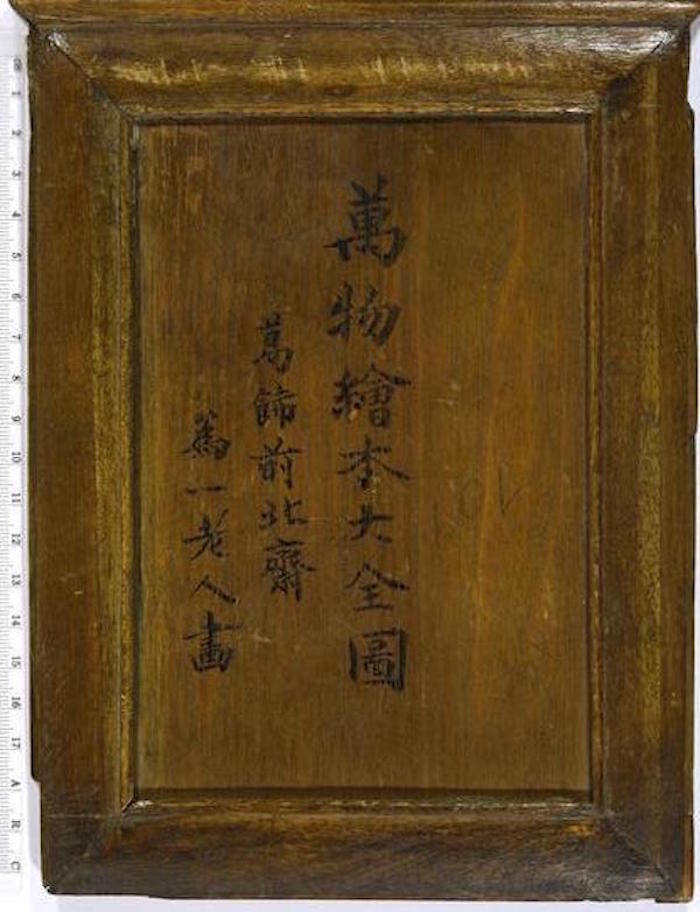 萬物繪本大全圖
葛飾前北齋
為一老人畫
1 2 3 4 5 6 7 8 9 10 11 12 13 14 15 16 17 A R C